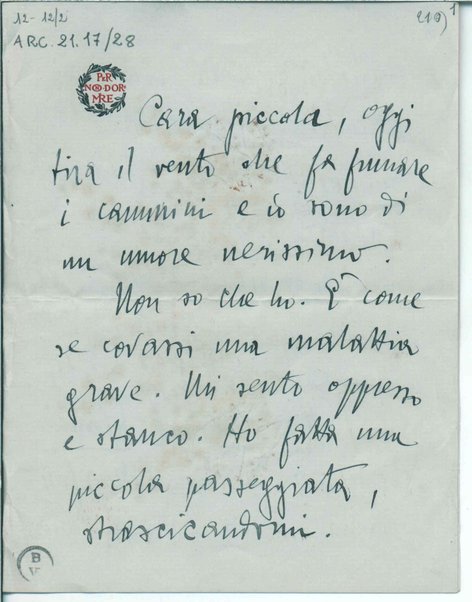 12-12/2
210) 1
ARC. 21.17/28
PER
NON DOR
MIRE
Cara piccola, oggi
tira il vento che fa fumare
i cammini e io sono di
un umore nerissimo.
Non so che ho. È come
se covassi una malattia
grave. Mi sento oppresso
e stanco. Ho fatta una
piccola passeggiata,
strascicandomi.
B
V